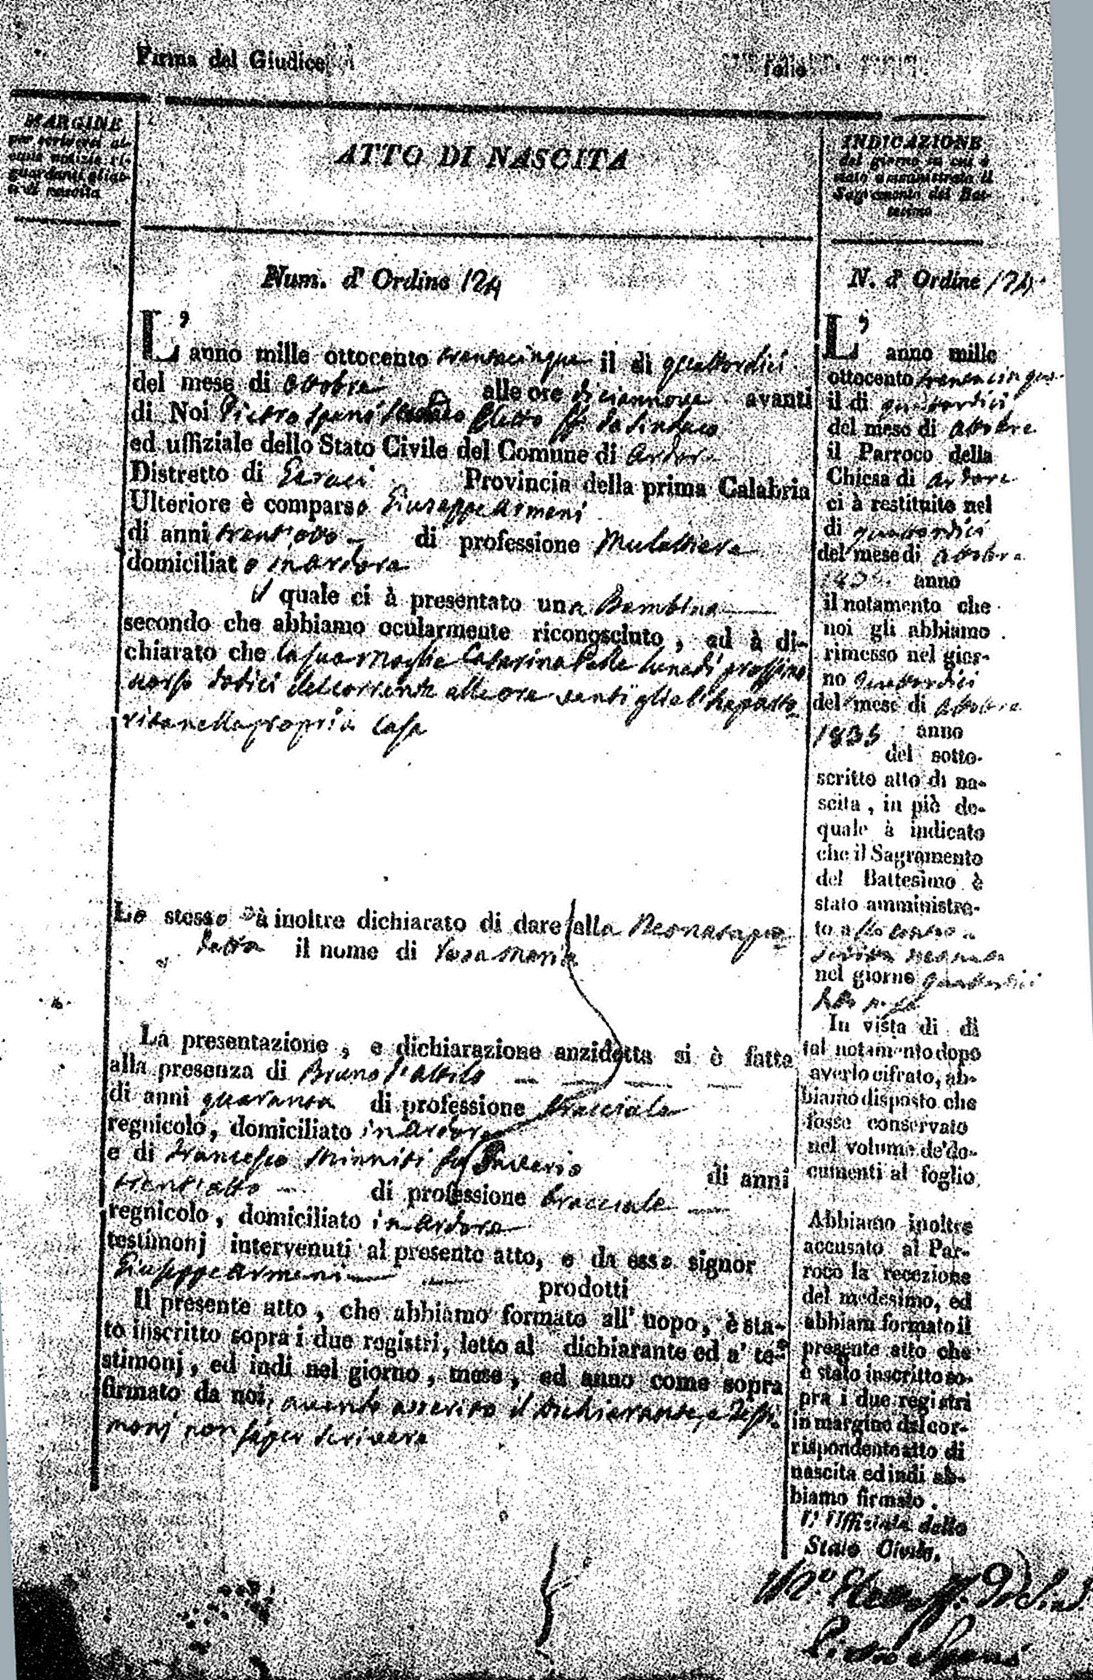 Firma del Giudice
folio
MARGINE
per scriversi al-
cuna notizia ri-
guardanti gli at-
ti di nascita
ATTO DI NASCITA
INDICAZIONE
del giorno in cui è
stato amministrato il
Sagramento del Bat-
tesimo
Num. d' Ordine 124
L'anno mille ottocento trentacinque il dì quattordici
del mese di Ottobre alle ore diciannove avanti
di Noi Pietro Spanò Secondo Eletto ff. da Sindaco
ed uffiziale dello Stato Civile del Comune di Ardore
Distretto di Geraci Provincia della prima Calabria
Ulteriore è comparso Giuseppe Armeni
di anni trent'otto di professione Mulattiere
domiciliato in Ardore
il quale ci à presentato una Bambina
secondo che abbiamo ocularmente riconosciuto, ed à di-
chiarato che la sua Moglie Catarina Pelle lunedì prossimo
scorso dodici del corrente alle ore venti gliel'ha parto
rita nella propria Casa
Lo stesso à inoltre dichiarato di dare alla Neonata pre
detta il nome di Rosa Maria
La presentazione, e dichiarazione anzidetta si è fatta
alla presenza di Bruno
di anni quaranta di professione bracciale
regnicolo, domiciliato in Ardore
e di Francesco Minniti fu Saverio di anni
trent'otto di professione bracciale
regnicolo, domiciliato in Ardore
testimonj intervenuti al presente atto, e da esso signor
Giuseppe Armeni prodotti
Il presente atto, che abbiamo formato all' uopo, è sta-
to inscritto sopra i due registri, letto al dichiarante ed a' te-
stimonj, ed indi nel giorno, mese, ed anno come sopra
firmato da noi, avendo asserito il Dichiarante, e Testi
monj non saper scrivere
N. d' Ordine 124
L'anno mille
ottocento trentacinque
il dì quattordici
del mese di Ottobre
il Parroco della
Chiesa di Ardore
ci à restituito nel
dì quattordici
del mese di Ottobre
1835 anno
il notamento che
noi gli abbiamo
rimesso nel gior-
no quattordici
del mese di Ottobre
1835 anno
del sotto-
scritto atto di na-
scita, in piè de-
quale à indicato
che il Sagramento
del Battesimo è
stato amministra-
to alla contro
scritta Neonata
nel giorno quattordici
In vista di dì
tal notamento dopo
averlo cifrato, ab-
biamo disposto che
fosse conservato
nel volume de' do-
cumenti al foglio
Abbiamo inoltre
accusato al Par-
roco la recezione
del medesimo, ed
abbiam formato il
presente atto che
è stato inscritto so-
pra i due registri
in margine del cor-
rispondente atto di
nascita ed indi ab-
biamo firmato.
L' Uffiziale dello
Stato Civile,
Pietro Spanò